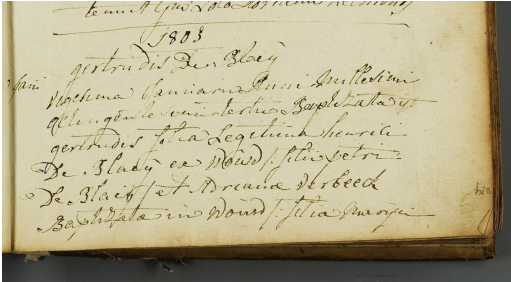 1803
Jani
gertrudis De Blaeÿ
vicesima Januarii Anni millesimi
octingentesimi tertii Baptizata est
gertrudis filia Legitima henrici
De Blaeÿ ex Wouw /: filii petri
De Blaeÿ / et Adriana verbeeck
Baptizata in Wouw /: filia